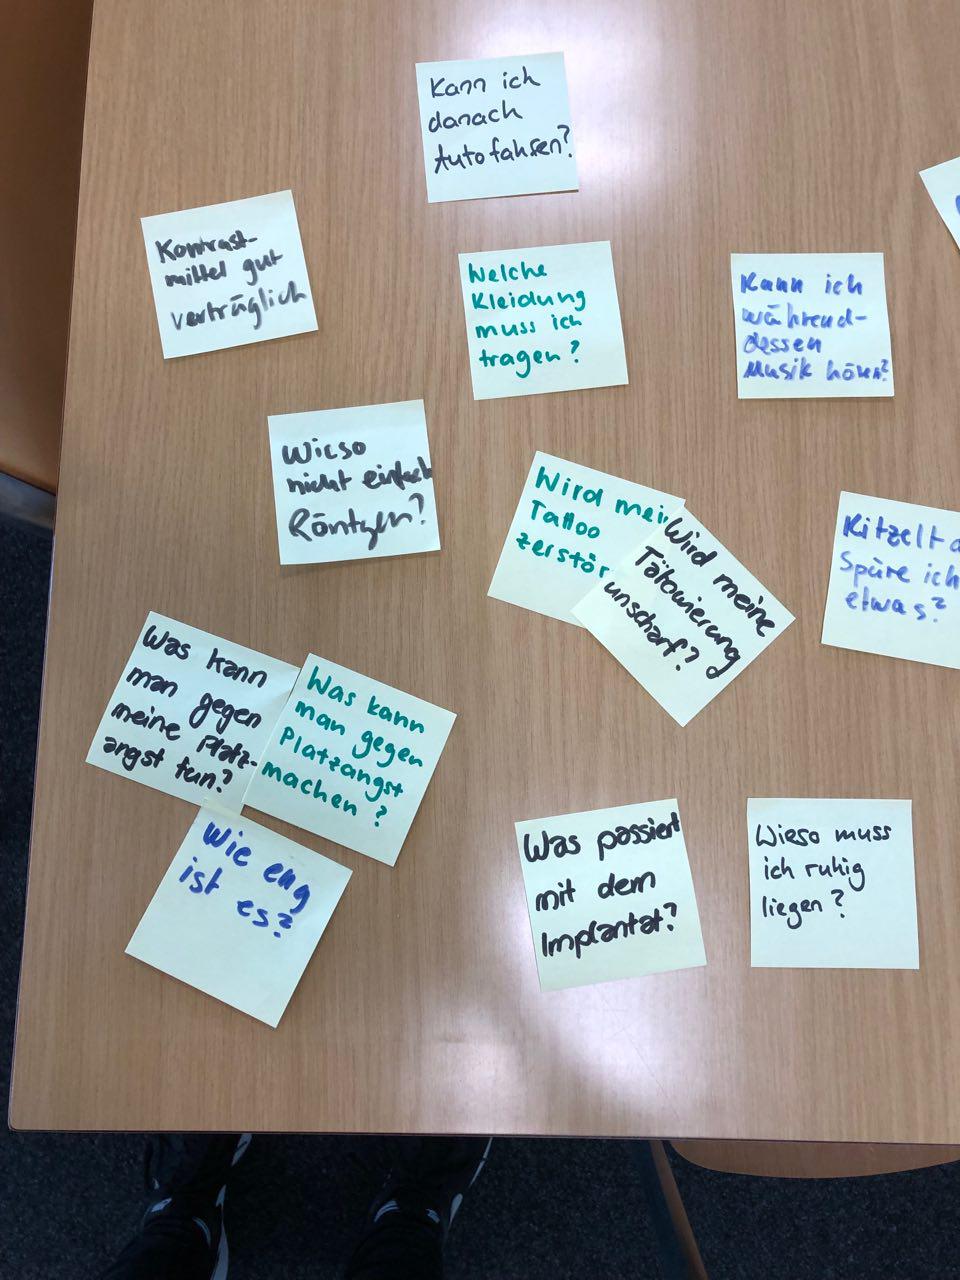 Kann ich
danach
Autofahren?
Kontrast-
mittel gut
verträglich
Welche
Kleidung
muss ich
tragen?
Kann ich
während-
dessen
Musik hören?
Wieso
nicht einfach
Röntgen?
Wird mein
Tattoo
zerstör
Wird meine
Tätowierung
unscharf?
Kitzelt
Spüre ich
etwas?
Was kann
man gegen
meine Platz-
angst tun?
Was kann
man gegen
Platzangst
machen?
Wie eng
ist
es?
Was passiert
mit dem
Implantat?
Wieso muss
ich ruhig
liegen?